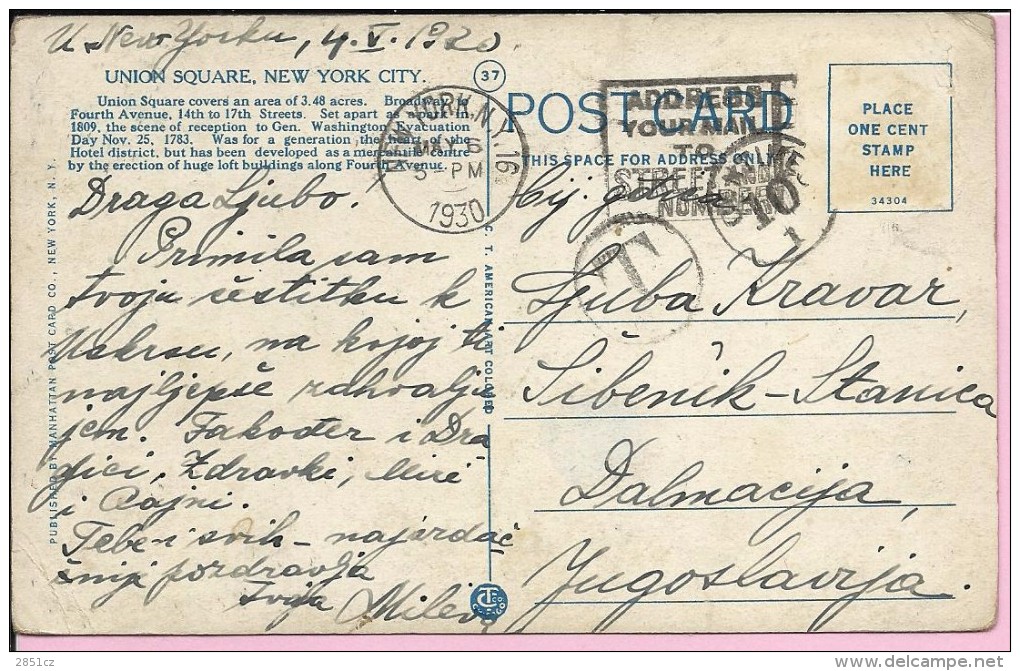 U New-Yorku, 4. V. 1930.
UNION SQUARE, NEW YORK CITY.
Union Square covers an area of 3.48 acres. Broadway to
Fourth Avenue, 14th to 17th Streets. Set apart as a park in
1809, the scene of reception to Gen. Washington, Evacuation
Day Nov. 25, 1783. Was for a generation the heart of the
Hotel district, but has been developed as a mercantile centre
by the erection of huge loft buildings along Fourth Avenue.
37
NEW YORK, N.Y. 16
MAY 6
5-PM
1930
POST CARD
THIS SPACE FOR ADDRESS ONLY
ADDRESS
YOUR MAIL
TO
STREET AND
NUMBER
PLACE
ONE CENT
STAMP
HERE
34304
T
CENTIMES
10
1
Draga Ljubo!
Primila sam
tvoju čestitku k
Uskrsu, na kojoj ti
najljepše zahvalju
jem. Također i Dra
gici, Zdravki, Miri
i
Tebe i svih - najsrdač
nije pozdravlja
tvoja Mileva
Cij. gdna
Ljuba Kravar,
Šibenik-Stanica
Dalmacija,
Jugoslavija.
PUBLISHED BY MANHATTAN POST CARD CO., NEW YORK, N. Y.
C. T. AMERICAN ART COLORED
2851cz
delcampe.net